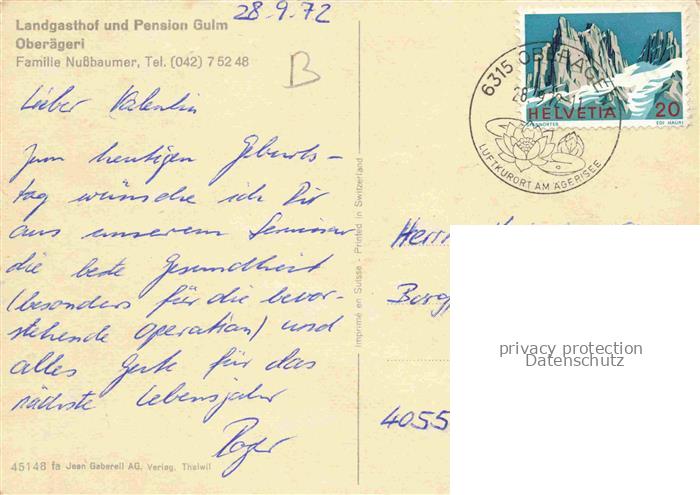 28.9.72
Landgasthof und Pension Gulm
Oberägeri
Familie Nußbaumer, Tel. (042) 7 52 48
B
Lieber Valentin
Zum heutigen Geburts-
tag wünsche ich Dir
aus unserem Seminar
die beste Gesundheit
(besonders für die bevor-
stehende Operation) und
alles Gute für das
nächste Lebensjahr
Roger
45148 fa Jean Gaberell AG, Verlag, Thalwil
Imprimé en Suisse - Printed in Switzerland
6315 OBERÄGERI
28.
LUFTKURORT AM ÄGERISEE
HELVETIA 20
EDI HAURI
Herrn
4055
privacy protection
Datenschutz